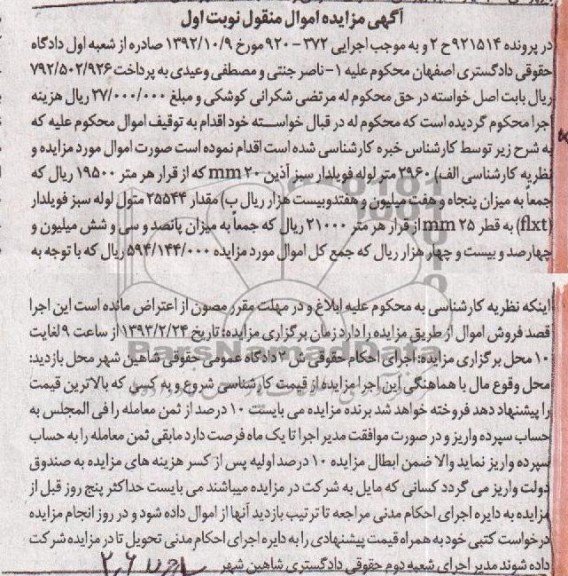 آگهی مزایده اموال منقول نوبت اول
در پرونده ۹۲۱۵۱۴ح ۲ و به موجب اجرایی ۳۷۲-۹۲۰ مورخ ۱۳۹۲/۱۰/۹ صادره از شعبه اول دادگاه
حقوقی دادگستری اصفهان محکوم علیه ۱-ناصر جنتی و مصطفی وعیدی به پرداخت ۷۹۲/۵۰۲/۹۲۶
ریال بابت اصل خواسته در حق محکوم له مرتضی شکرانی کوشکی و مبلغ ۲۷/۰۰۰/۰۰۰ ریال هزینه
اجرا محکوم گردیده است که محکوم له در قبال خواسته خود اقدام به توقیف اموال محکوم علیه که
به شرح زیر توسط کارشناس خبره کارشناسی شده است اقدام نموده است صورت اموال مورد مزایده و
نظریه کارشناسی الف) ۲۹۶۰ متر لوله فویلدار سبز آذین ۲۰ mm که از قرار هر متر ۱۹۵۰۰ ریال که
جمعاً به میزان پنجاه و هفت میلیون و هفتصدوبیست هزار ریال ب) مقدار ۲۵۵۴۴ متول لوله سبز فویلدار
(flxt) به قطر ۲۵ mm از قرار هر متر ۲۱۰۰۰ ریال که جمعاً به میزان پانصد و سی و شش میلیون و
چهارصد و بیست و چهار هزار ریال که جمع کل اموال مورد مزایده ۵۹۴/۱۴۴/۰۰۰ ریال که با توجه به
اینکه نظریه کارشناسی به محکوم علیه ابلاغ و در مهلت مقرر مصون از اعتراض مانده است این اجرا
قصد فروش اموال از طریق مزایده را دارد زمان برگزاری مزایده: تاریخ ۱۳۹۳/۲/۲۴ از ساعت ۹ لغایت
۱۰ محل برگزاری مزایده: اجرای احکام حقوقی ش ۲ دادگاه عمومی حقوقی شاهین شهر محل بازدید:
محل وقوع مال با هماهنگی این اجرا مزایده از قیمت کارشناسی شروع و به کسی که بالاترین قیمت
را پیشنهاد دهد فروخته خواهد شد برنده مزایده می بایست ۱۰ درصد از ثمن معامله را فی المجلس به
حساب سپرده واریز و در صورت موافقت مدیر اجرا تا یک ماه فرصت دارد مابقی ثمن معامله را به حساب
سپرده واریز نماید والا ضمن ابطال مزایده ۱۰ درصد اولیه پس از کسر هزینه های مزایده به صندوق
دولت واریز می گردد کسانی که مایل به شرکت در مزایده میباشند می بایست حداکثر پنج روز قبل از
مزایده به دایره اجرای احکام مدنی مراجعه تا ترتیب بازدید آنها از اموال داده شود و در روز انجام مزایده
درخواست کتبی خود به همراه قیمت پیشنهادی را به دایره اجرای احکام مدنی تحویل تا در مزایده شرکت
داده شوند مدیر اجرای شعبه دوم حقوقی دادگستری شاهین شهر
ParsNamadData